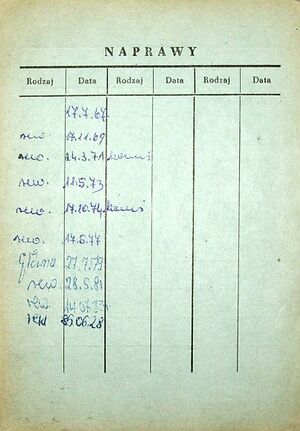 NAPRAWY
Rodzaj Data Rodzaj Data Rodzaj Data
17.7.67
rew. 17.11.69
rew. 24.3.71
rew. 11.5.73
rew. 17.10.74
rew. 17.5.77
Główna 27.7.79
rew. 28.5.81
rew.
86 06 28